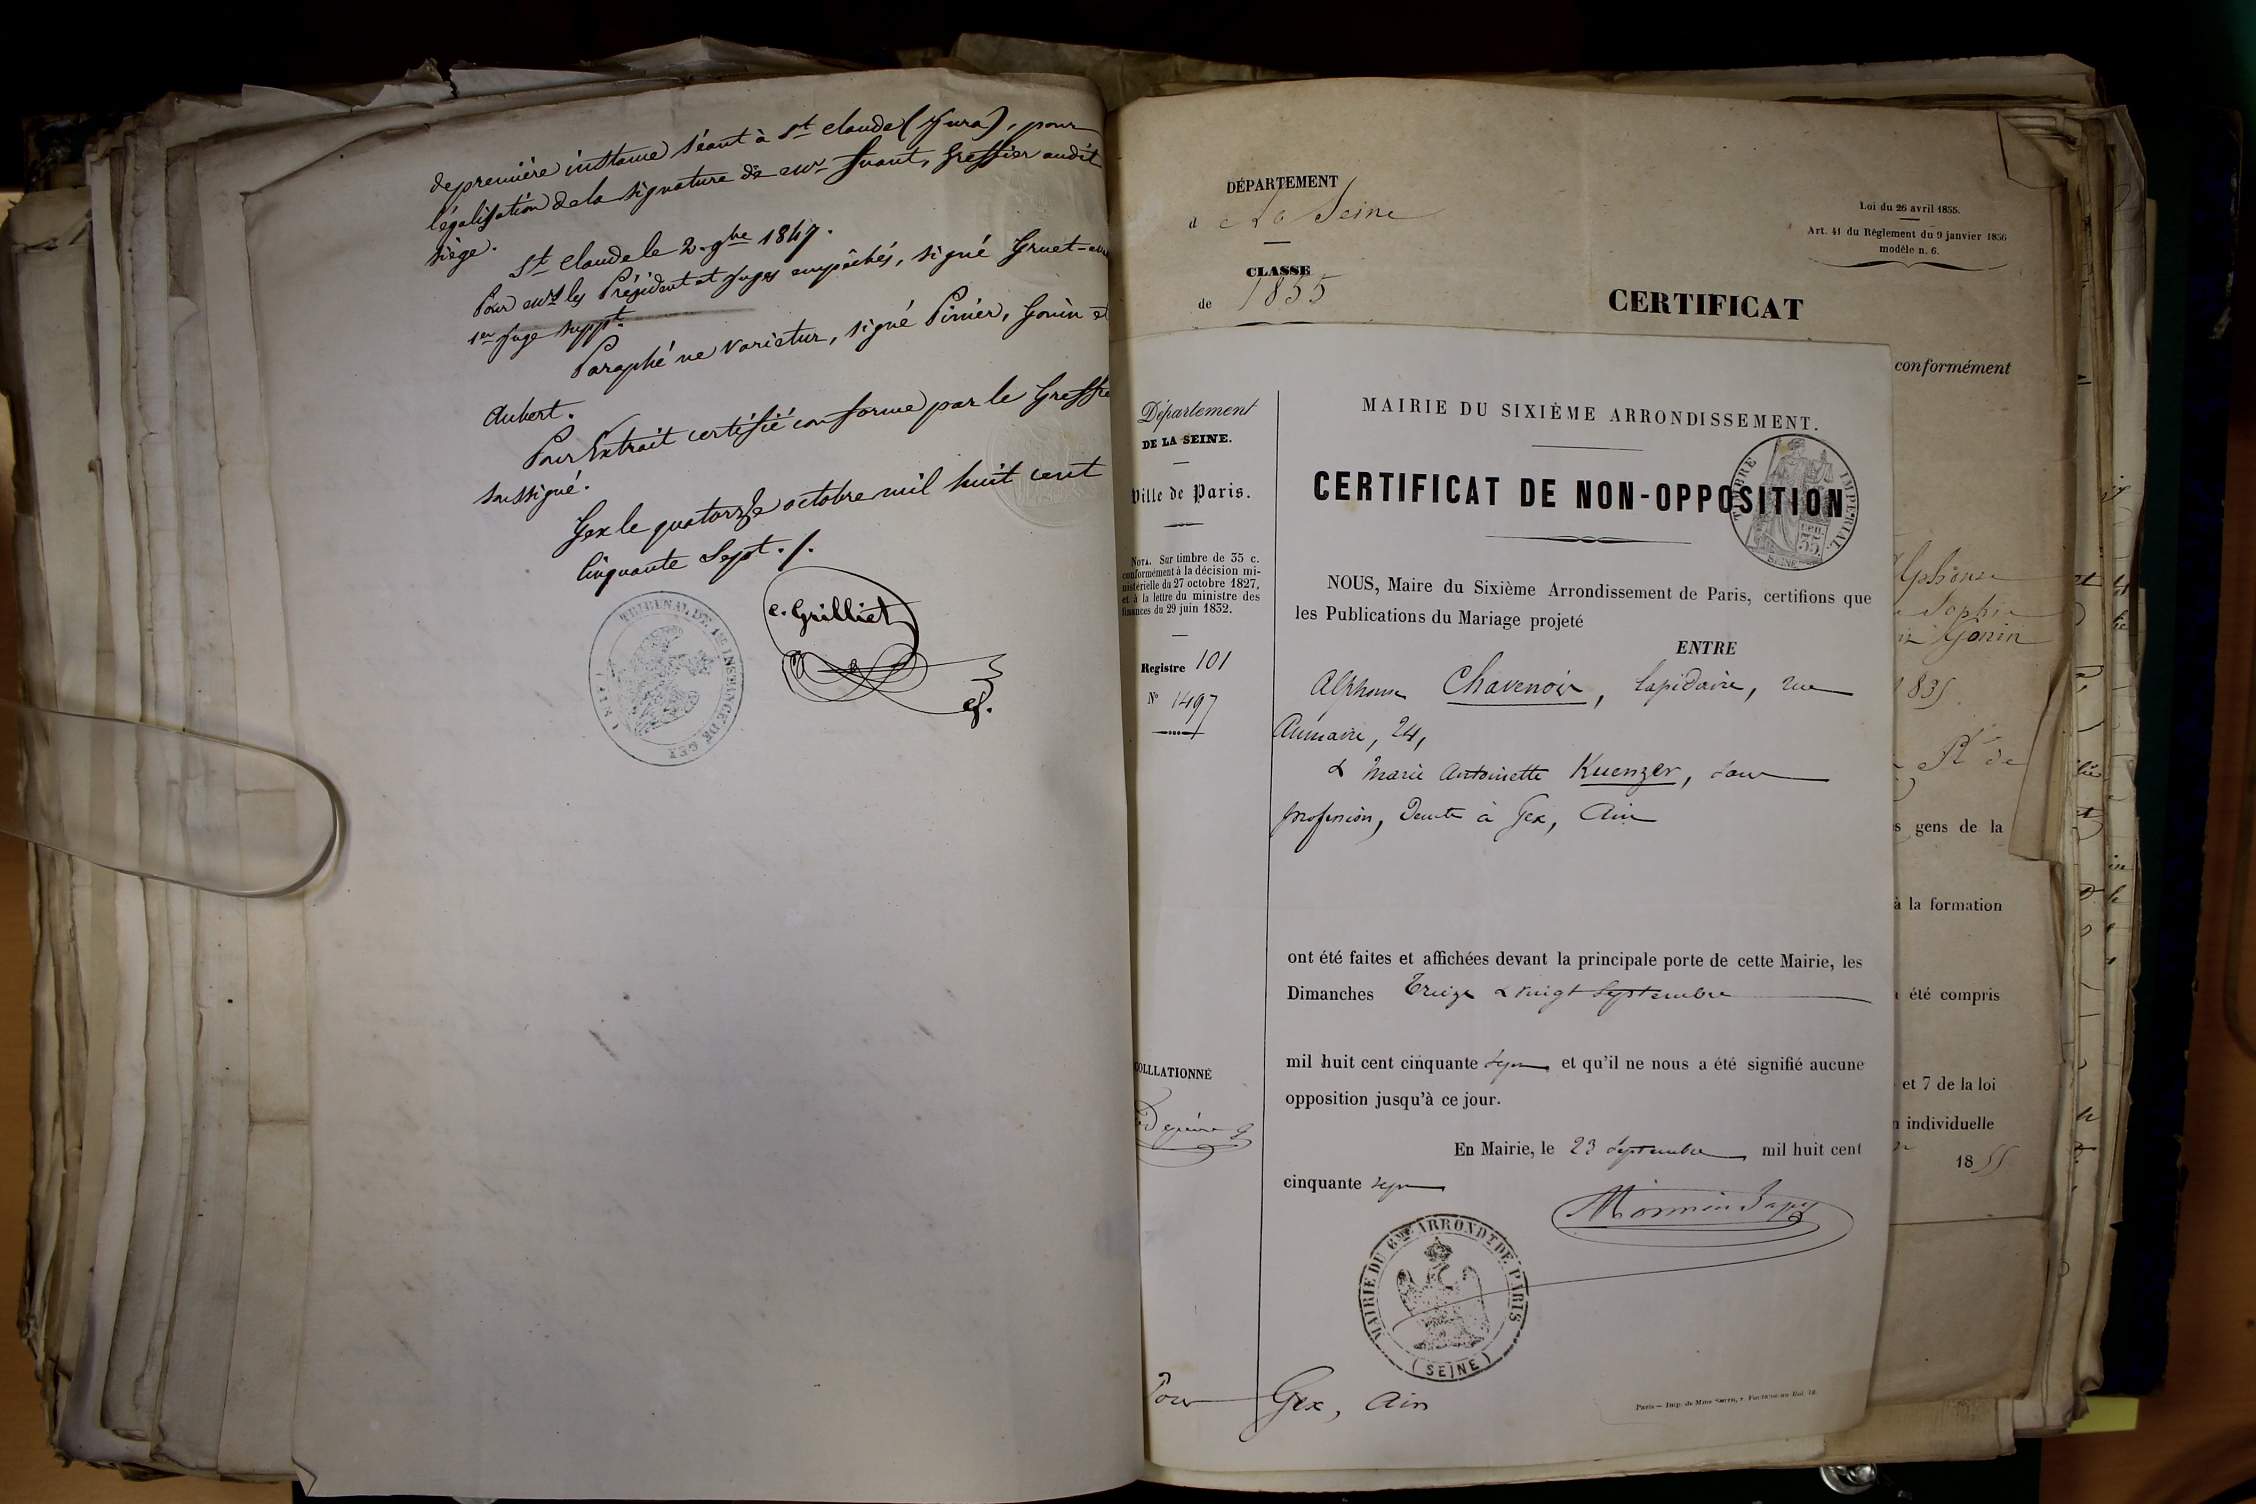 de première instance séant à St Claude (Jura), pour
légalisation de la signature de Mr Suant, Greffier audit
siège.
St Claude le 2 9bre 1847.
Pour MM les Président et Juges empêchés, signé Gruet-
1er Juge suppt.
Paraphé ne varietur, signé Pinier, Gonin et
Aubert.
Pour Extrait certifié conforme par le Greffier
soussigné.
Gex le quatorze octobre mil huit cent
Cinquante Sept ./.
C. Grilliet
TRIBUNAL DE 1RE INSTANCE DE GEX
(AIN)
DÉPARTEMENT
d e La Seine
CLASSE
de 1855
Loi du 26 avril 1855.
Art. 41 du Règlement du 9 janvier 1856
modèle n. 6.
CERTIFICAT
conformément
Alphonse
Sophie
Gonin
1835
Rt de
gens de la
à la formation
été compris
et 7 de la loi
individuelle
18 55
Département
DE LA SEINE.
Ville de Paris.
NOTA. Sur timbre de 35 c.
conformément à la décision mi-
nistérielle du 27 octobre 1827,
et à la lettre du ministre des
finances du 29 juin 1832.
Registre 101
No 1497
COLLLATIONNÉ
MAIRIE DU SIXIÈME ARRONDISSEMENT.
CERTIFICAT DE NON-OPPOSITION
TIMBRE IMPÉRIAL
SEINE
NOUS, Maire du Sixième Arrondissement de Paris, certifions que
les Publications du Mariage projeté
ENTRE
Alphonse Chavenoir, lapidaire, rue
Aumaire, 24,
& Marie Antoinette Kuenzer, sans
profession, demt à Gex, Ain
ont été faites et affichées devant la principale porte de cette Mairie, les
Dimanches Treize & vingt Septembre
mil huit cent cinquante sept et qu'il ne nous a été signifié aucune
opposition jusqu'à ce jour.
En Mairie, le 23 Septembre mil huit cent
cinquante sept
MAIRIE DU 6ME ARRONDT DE PARIS
(SEINE)
Pour Gex, Ain